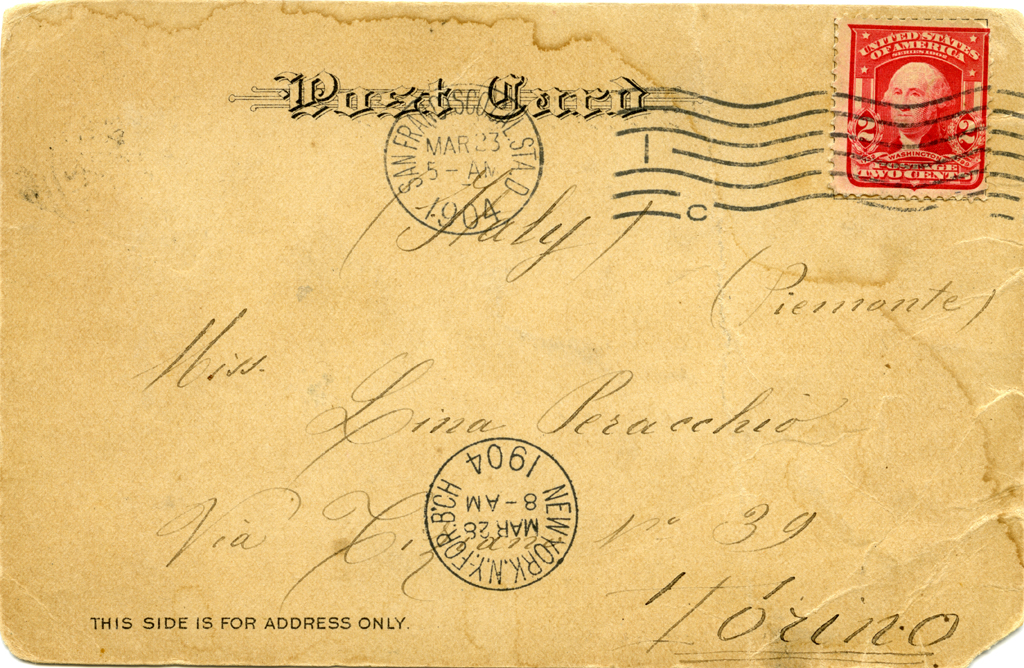 Post Card
UNITED STATES
OF AMERICA
SERIES 1902
2 2
WASHINGTON
TWO CENTS
SAN FRANCISCO, STA. D.
MAR 23
5-AM
1904
C
(Italy)
(Piemonte)
Miss.
Lina Peracchio
Via No 39
Torino
NEW YORK, N.Y. FOR. B'CH
MAR 28
8-AM
1904
THIS SIDE IS FOR ADDRESS ONLY.